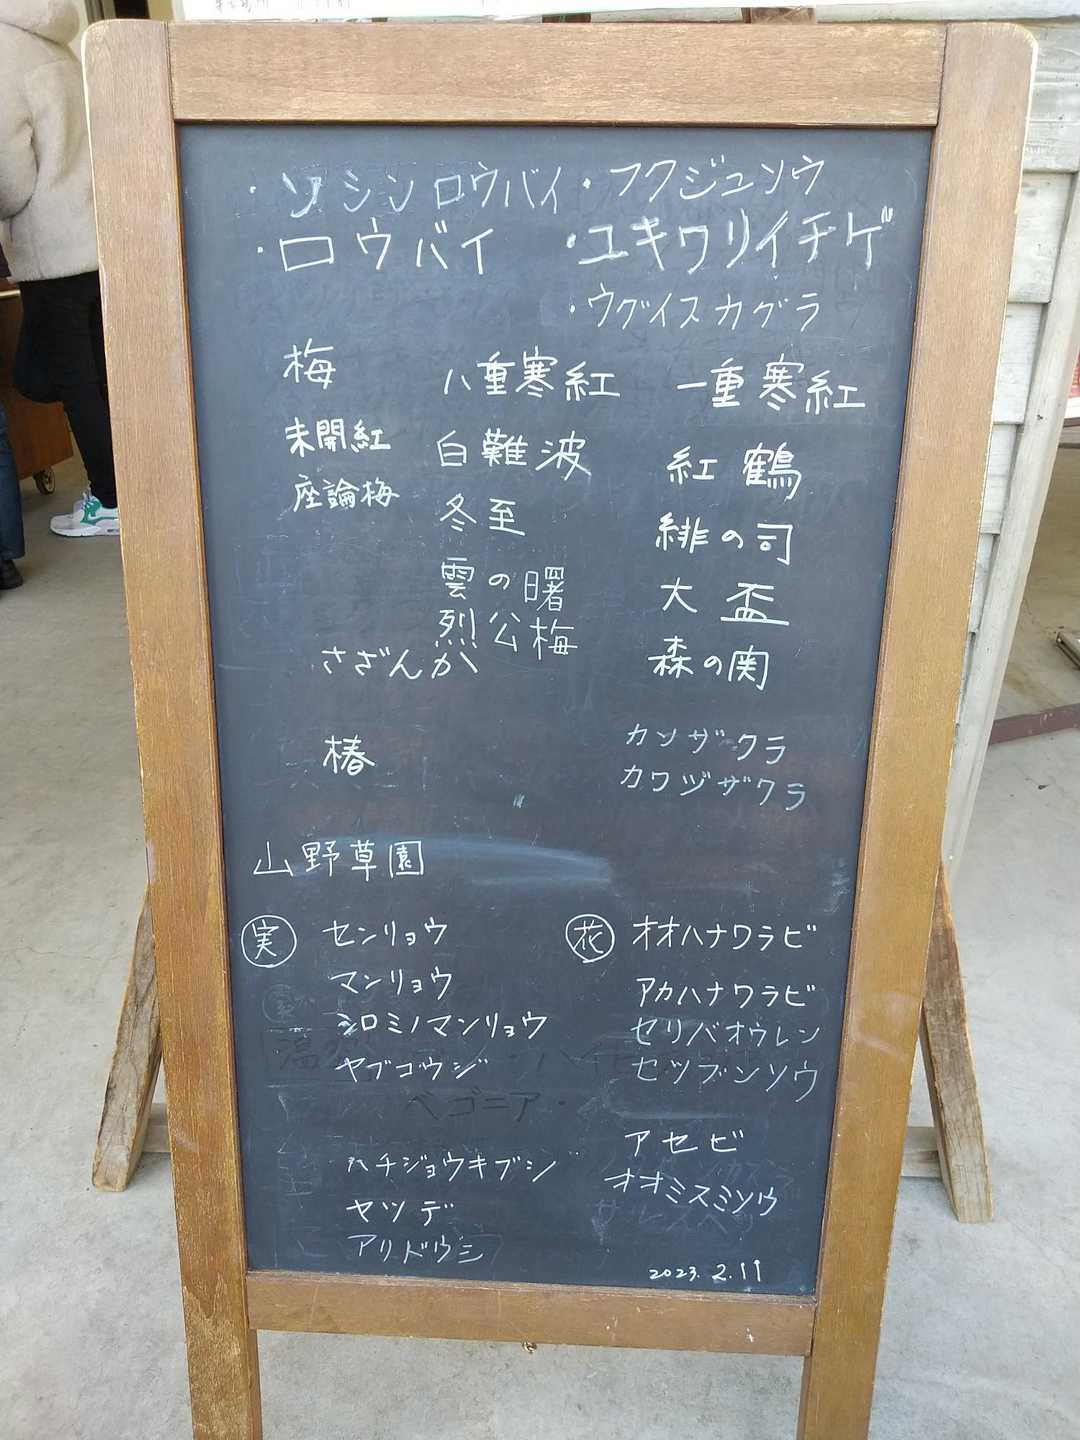 ・ソシンロウバイ ・フクジュソウ
・ロウバイ ・ユキワリイチゲ
・ウグイスカグラ
梅 八重寒紅 一重寒紅
未開紅 白難波 紅鶴
座論梅 冬至 緋の司
雲の曙 大盃
烈公梅 森の関
さざんか
カンザクラ
椿 カワヅザクラ
山野草園
実 センリョウ 花 オオハナワラビ
マンリョウ アカハナワラビ
シロミノマンリョウ セリバオウレン
ヤブコウジ セツブンソウ
ベゴニア・
アセビ
ハチジョウキブシ オオミスミソウ
ヤツデ
アリドウシ
2023.2.11